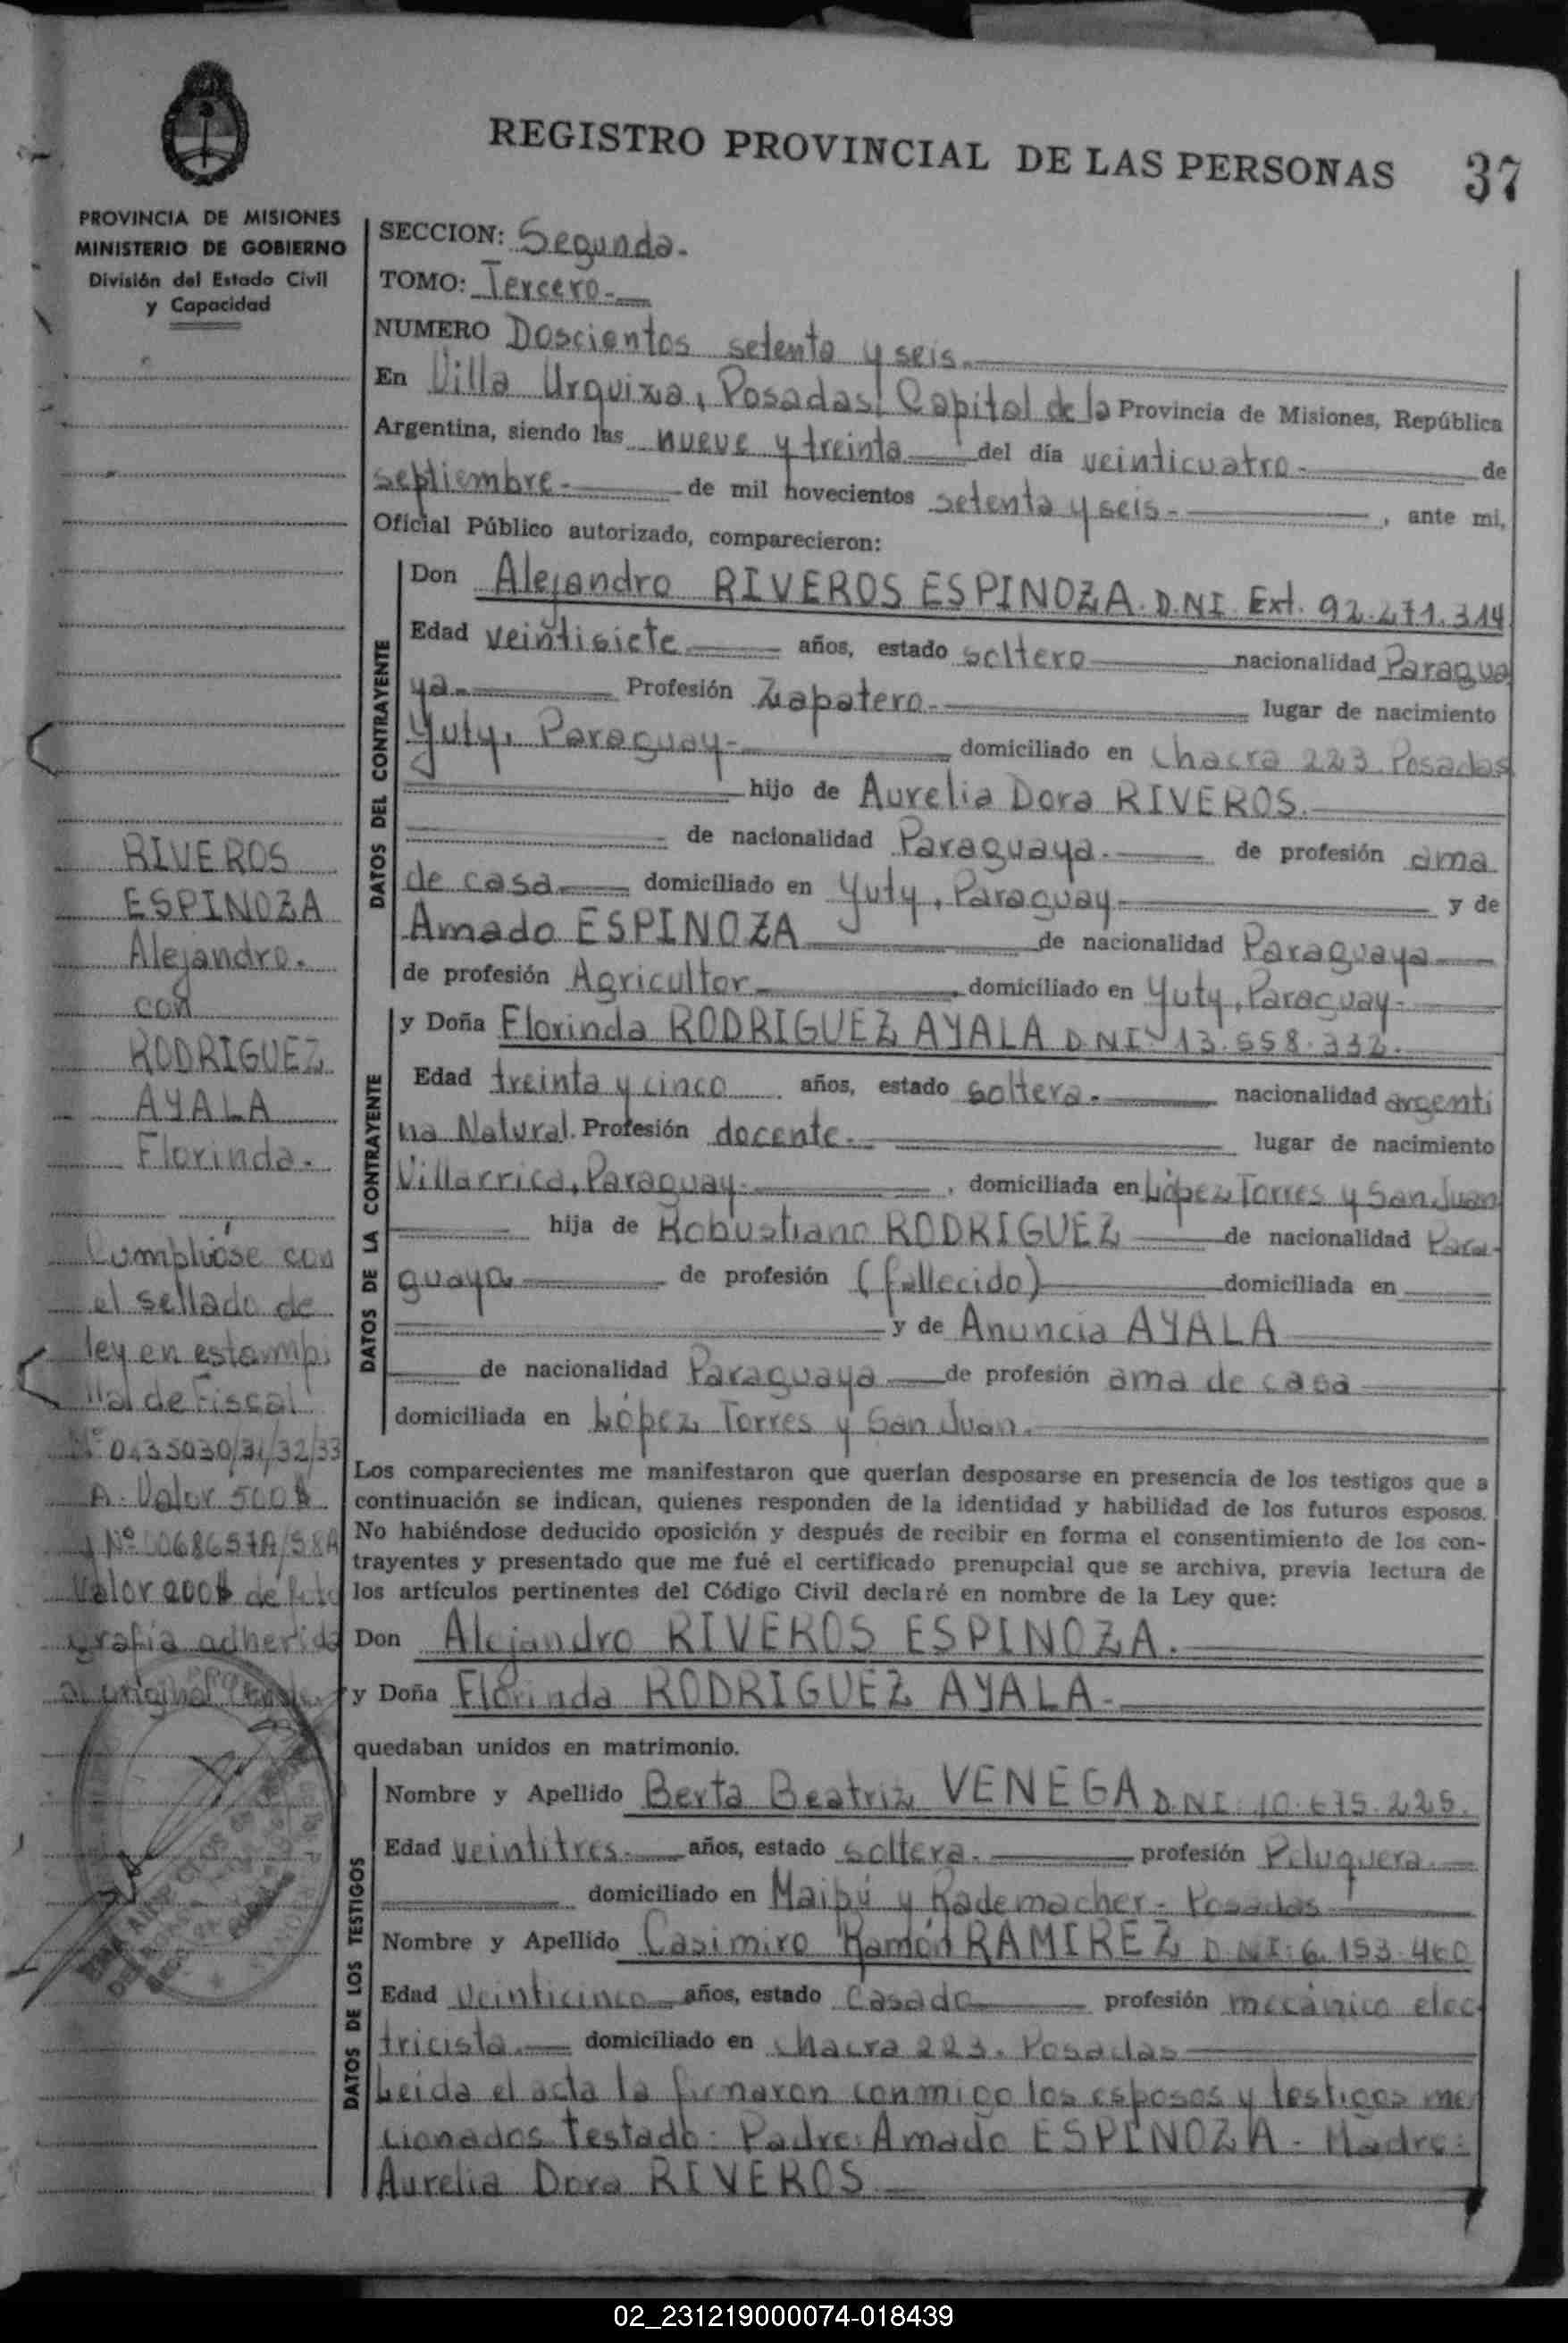 REGISTRO PROVINCIAL DE LAS PERSONAS 37
PROVINCIA DE MISIONES
MINISTERIO DE GOBIERNO
División del Estado Civil
y Capacidad
SECCION: Segunda.
TOMO: Tercero.
NUMERO Doscientos setenta y seis.
En Villa Urquiza, Posadas, Capital de la Provincia de Misiones, República
Argentina, siendo las nueve y treinta del día veinticuatro de
septiembre de mil novecientos setenta y seis, ante mi,
Oficial Público autorizado, comparecieron:
DATOS DEL CONTRAYENTE
Don Alejandro RIVEROS ESPINOZA. D.NI. Ext. 92.271.314
Edad veintisiete años, estado soltero nacionalidad Paragua
ya. Profesión Zapatero. lugar de nacimiento
Yuty, Paraguay domiciliado en chacra 223 Posadas
hijo de Aurelia Dora RIVEROS.
de nacionalidad Paraguaya. de profesión ama
de casa domiciliado en Yuty, Paraguay y de
Amado ESPINOZA de nacionalidad Paraguaya
de profesión Agricultor domiciliado en Yuty, Paraguay
DATOS DE LA CONTRAYENTE
y Doña Florinda RODRIGUEZ AYALA D.NI 13.558.332.
Edad treinta y cinco años, estado soltera. nacionalidad argenti
na Natural. Profesión docente. lugar de nacimiento
Villarrica, Paraguay, domiciliada en López Torres y San Juan
hija de Robustiano RODRIGUEZ de nacionalidad Para-
guaya de profesión (fallecido) domiciliada en
y de Anuncia AYALA
de nacionalidad Paraguaya de profesión ama de casa
domiciliada en López Torres y San Juan.
Los comparecientes me manifestaron que querían desposarse en presencia de los testigos que a
continuación se indican, quienes responden de la identidad y habilidad de los futuros esposos.
No habiéndose deducido oposición y después de recibir en forma el consentimiento de los con-
trayentes y presentado que me fué el certificado prenupcial que se archiva, previa lectura de
los artículos pertinentes del Código Civil declaré en nombre de la Ley que:
Don Alejandro RIVEROS ESPINOZA.
y Doña Florinda RODRIGUEZ AYALA-
quedaban unidos en matrimonio.
DATOS DE LOS TESTIGOS
Nombre y Apellido Berta Beatriz VENEGA D.NI. 10.675.225.
Edad veintitres. años, estado soltera. profesión Peluquera.
domiciliado en Maipú y Rademacher - Posadas
Nombre y Apellido Casimiro Ramón RAMIREZ D.N.I: 6.153.460
Edad veinticinco años, estado casado profesión mecánico elec
tricista. domiciliado en chacra 223. Posadas
Leida el acta la firmaron conmigo los esposos y testigos men
cionados Testado: Padre: Amado ESPINOZA - Madre:
Aurelia Dora RIVEROS
RIVEROS
ESPINOZA
Alejandro.
con
RODRIGUEZ
AYALA
Florinda.
Cumplióse con
el sellado de
ley en estampi
lla de Fiscal
Nº 0435030/31/32/33
A. Valor 500$
y Nº 0068657A/58A
Valor 200$ de foto
grafia adherida
al original
02_231219000074-018439